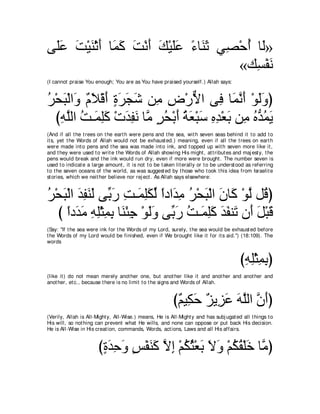 «لَا أُحْصِي ثَنَاءً عَلَيْكَ أَنْتَ كَمَا أَثْنَيْتَ عَلَى
نَفْسِكَ»
(I cannot praise You enough; You are as You have praised yourself.) Allah says:
(وَلَوْ أَنَّمَا فِى الاٌّرْضِ مِن شَجَرَةٍ أَقْلاَمٌ وَالْبَحْرُ
يَمُدُّهُ مِن بَعْدِهِ سَبْعَةُ أَبْحُرٍ مَّا نَفِدَتْ كَلِمَـتُ اللَّهِ)
(And if all the trees on the earth were pens and the sea, with seven seas behind it to add to
its, yet the Words of Allah would not be exhausted.) meaning, even if all the trees on earth
were made into pens and the sea was made into ink, and topped up with seven more like it,
and they were used to write the Words of Allah showing His might, attributes and majesty, the
pens would break and the ink would run dry, even if more were brought. The number seven is
used to indicate a large amount, it is not to be taken literally or to be understood as referring
to the seven oceans of the world, as was suggested by those who took this idea from Israelite
stories, which we neither believe nor reject. As Allah says elsewhere:
(قُل لَّوْ كَانَ الْبَحْرُ مِدَاداً لِّكَلِمَـتِ رَبِّى لَنَفِدَ الْبَحْرُ
قَبْلَ أَن تَنفَدَ كَلِمَـتُ رَبِّى وَلَوْ جِئْنَا بِمِثْلِهِ مَدَداً )
(Say: "If the sea were ink for the Words of my Lord, surely, the sea would be exhausted before
the Words of my Lord would be finished, even if We brought like it for its aid.") (18:109). The
words
(بِمِثْلِهِ)
(like it) do not mean merely another one, but another like it and another and another and
another, etc., because there is no limit to the signs and Words of Allah.
(أَنَّ اللَّهَ عَزِيزٌ حَكِيمٌ)
(Verily, Allah is All-Mighty, All-Wise.) means, He is All-Mighty and has subjugated all things to
His will, so nothing can prevent what He wills, and none can oppose or put back His decision.
He is All-Wise in His creation, commands, Words, actions, Laws and all His affairs.
(مَّا خَلْقُكُمْ وَلاَ بَعْثُكُمْ إِلاَّ كَنَفْسٍ وَحِدَةٍ)